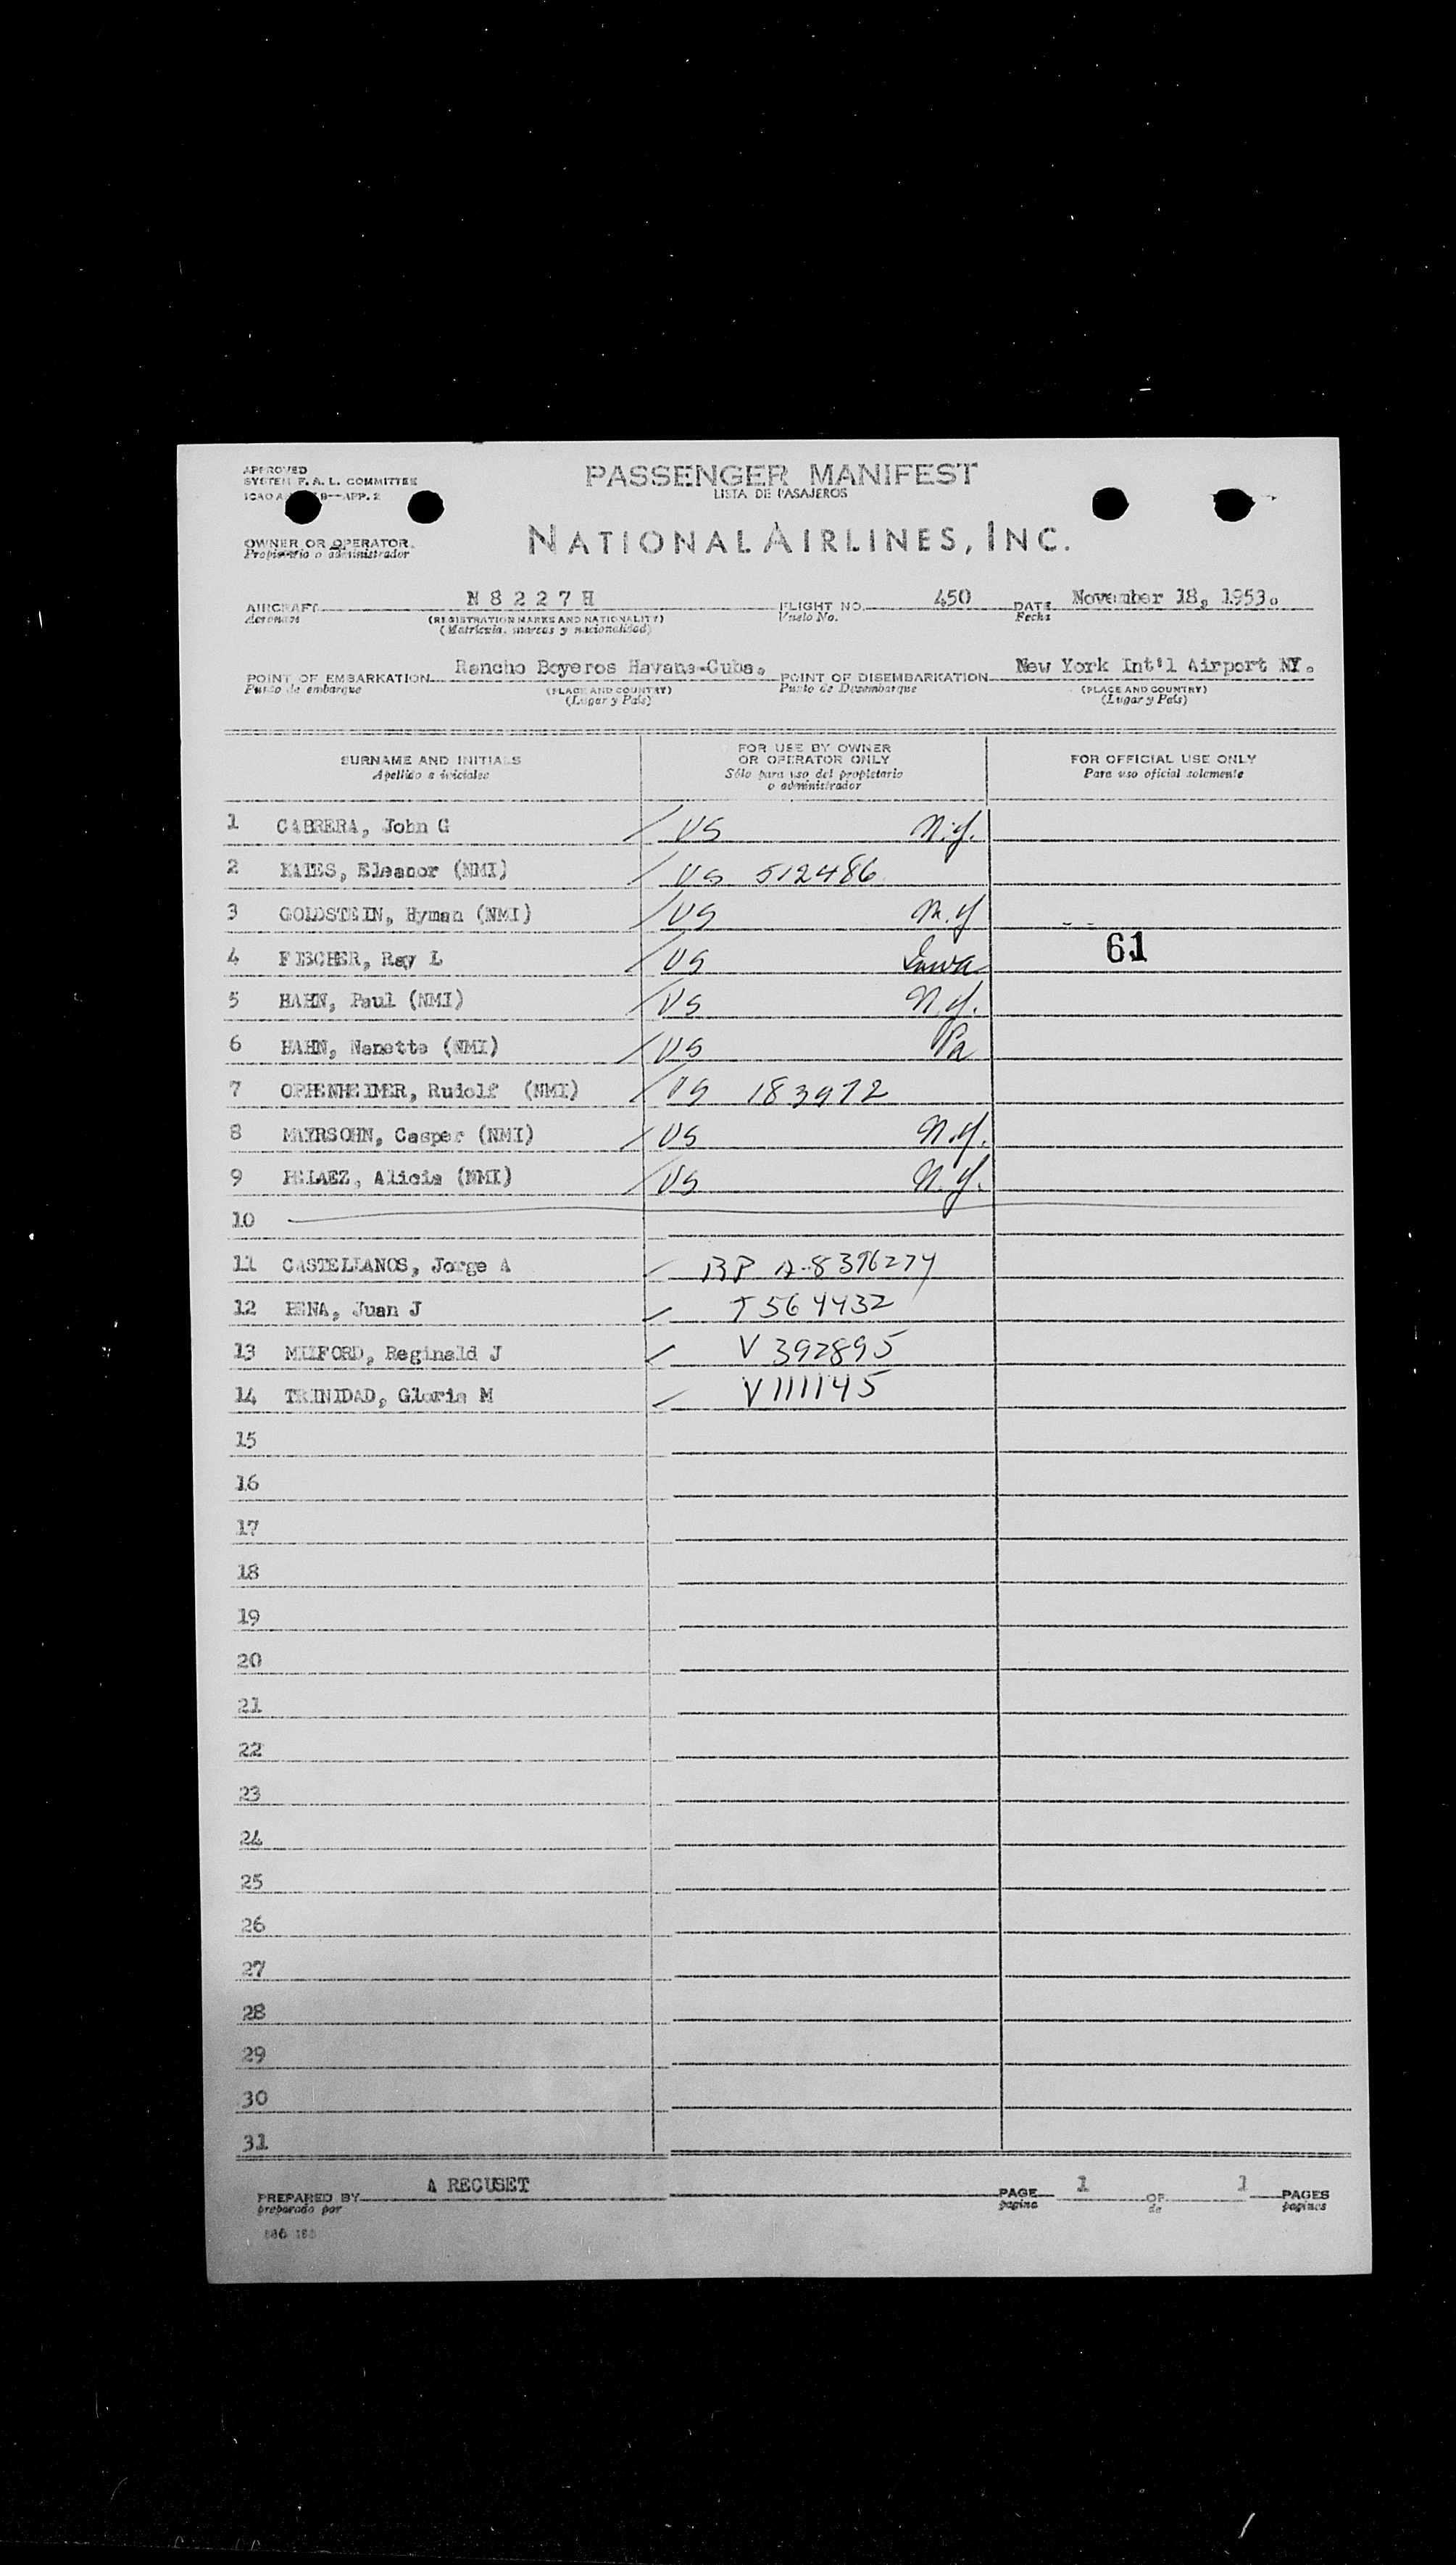 APPROVED
SYSTEM F. A. L. COMMITTEE
PASSENGER MANIFEST
LISTA DE PASAJEROS
NATIONAL AIRLINES, INC.
OWNER OR OPERATOR
Propietario o administrador
AIRCRAFT N 8 2 2 7 H FLIGHT NO. 450 DATE November 18, 1953.
Aeronave (REGISTRATION MARKS AND NATIONALITY) Vuelo No. Fecha
(Matricula, marcas y nacionalidad)
POINT OF EMBARKATION Rancho Boyeros Havana-Cuba. POINT OF DISEMBARKATION New York Int'l Airport NY.
Punto de embarque (PLACE AND COUNTRY) Punto de Desembarque (PLACE AND COUNTRY)
(Lugar y País) (Lugar y País)
SURNAME AND INITIALS
Apellido e iniciales
FOR USE BY OWNER
OR OPERATOR ONLY
Sólo para uso del propietario
o administrador
FOR OFFICIAL USE ONLY
Para uso oficial solamente
1 CABRERA, John G US N.Y.
2 Eleanor (NMI) US 512486
3 GOLDSTEIN, Hyman (NMI) US N.Y
4 FISCHER, Ray L US Iowa
61
5 HAHN, Paul (NMI) US N.Y.
6 HAHN, Nanette (NMI) US Pa
7 OPPENHEIMER, Rudolf (NMI) US 183972
8 MAYRSOHN, Casper (NMI) US N.Y.
9 PELAEZ, Alicia (NMI) US N.Y.
10
11 CASTELLANOS, Jorge A A-8376274
12 PENA, Juan J T564432
13 MILFORD, Reginald J V 392895
14 TRINIDAD, Gloria M V111145
15
16
17
18
19
20
21
22
23
24
25
26
27
28
29
30
31
PREPARED BY A RECUSET PAGE 1 OF 1 PAGES
preparado por pagina de paginas